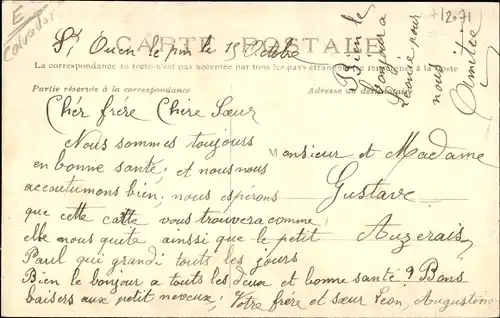 E
Calvados
+1271
CARTE POSTALE
St Ouen le pin le 15 Octobre
La correspondance au recto n'est pas acceptée par tous les pays étrangers se renseigner à la Poste
Partie réservée à la correspondance
Adresse du destinataire
Bien le
bonjour a
Léonie pour
nous
Amitié
Chér frére Chére Sœur
Nous sommes toujours
en bonne santé, et nous nous
accoutumons bien, nous espérons
que cette catte vous trouvera comme
elle nous quite ainsi que le petit
Paul qui grandi touts les jours
Bien le bonjour a touts les deux et bonne santé 9 Bons
baisers aux petit neveux, Votre frére et sœur Léon, Augustine
Monsieur et Madame
Gustave
Auzerais